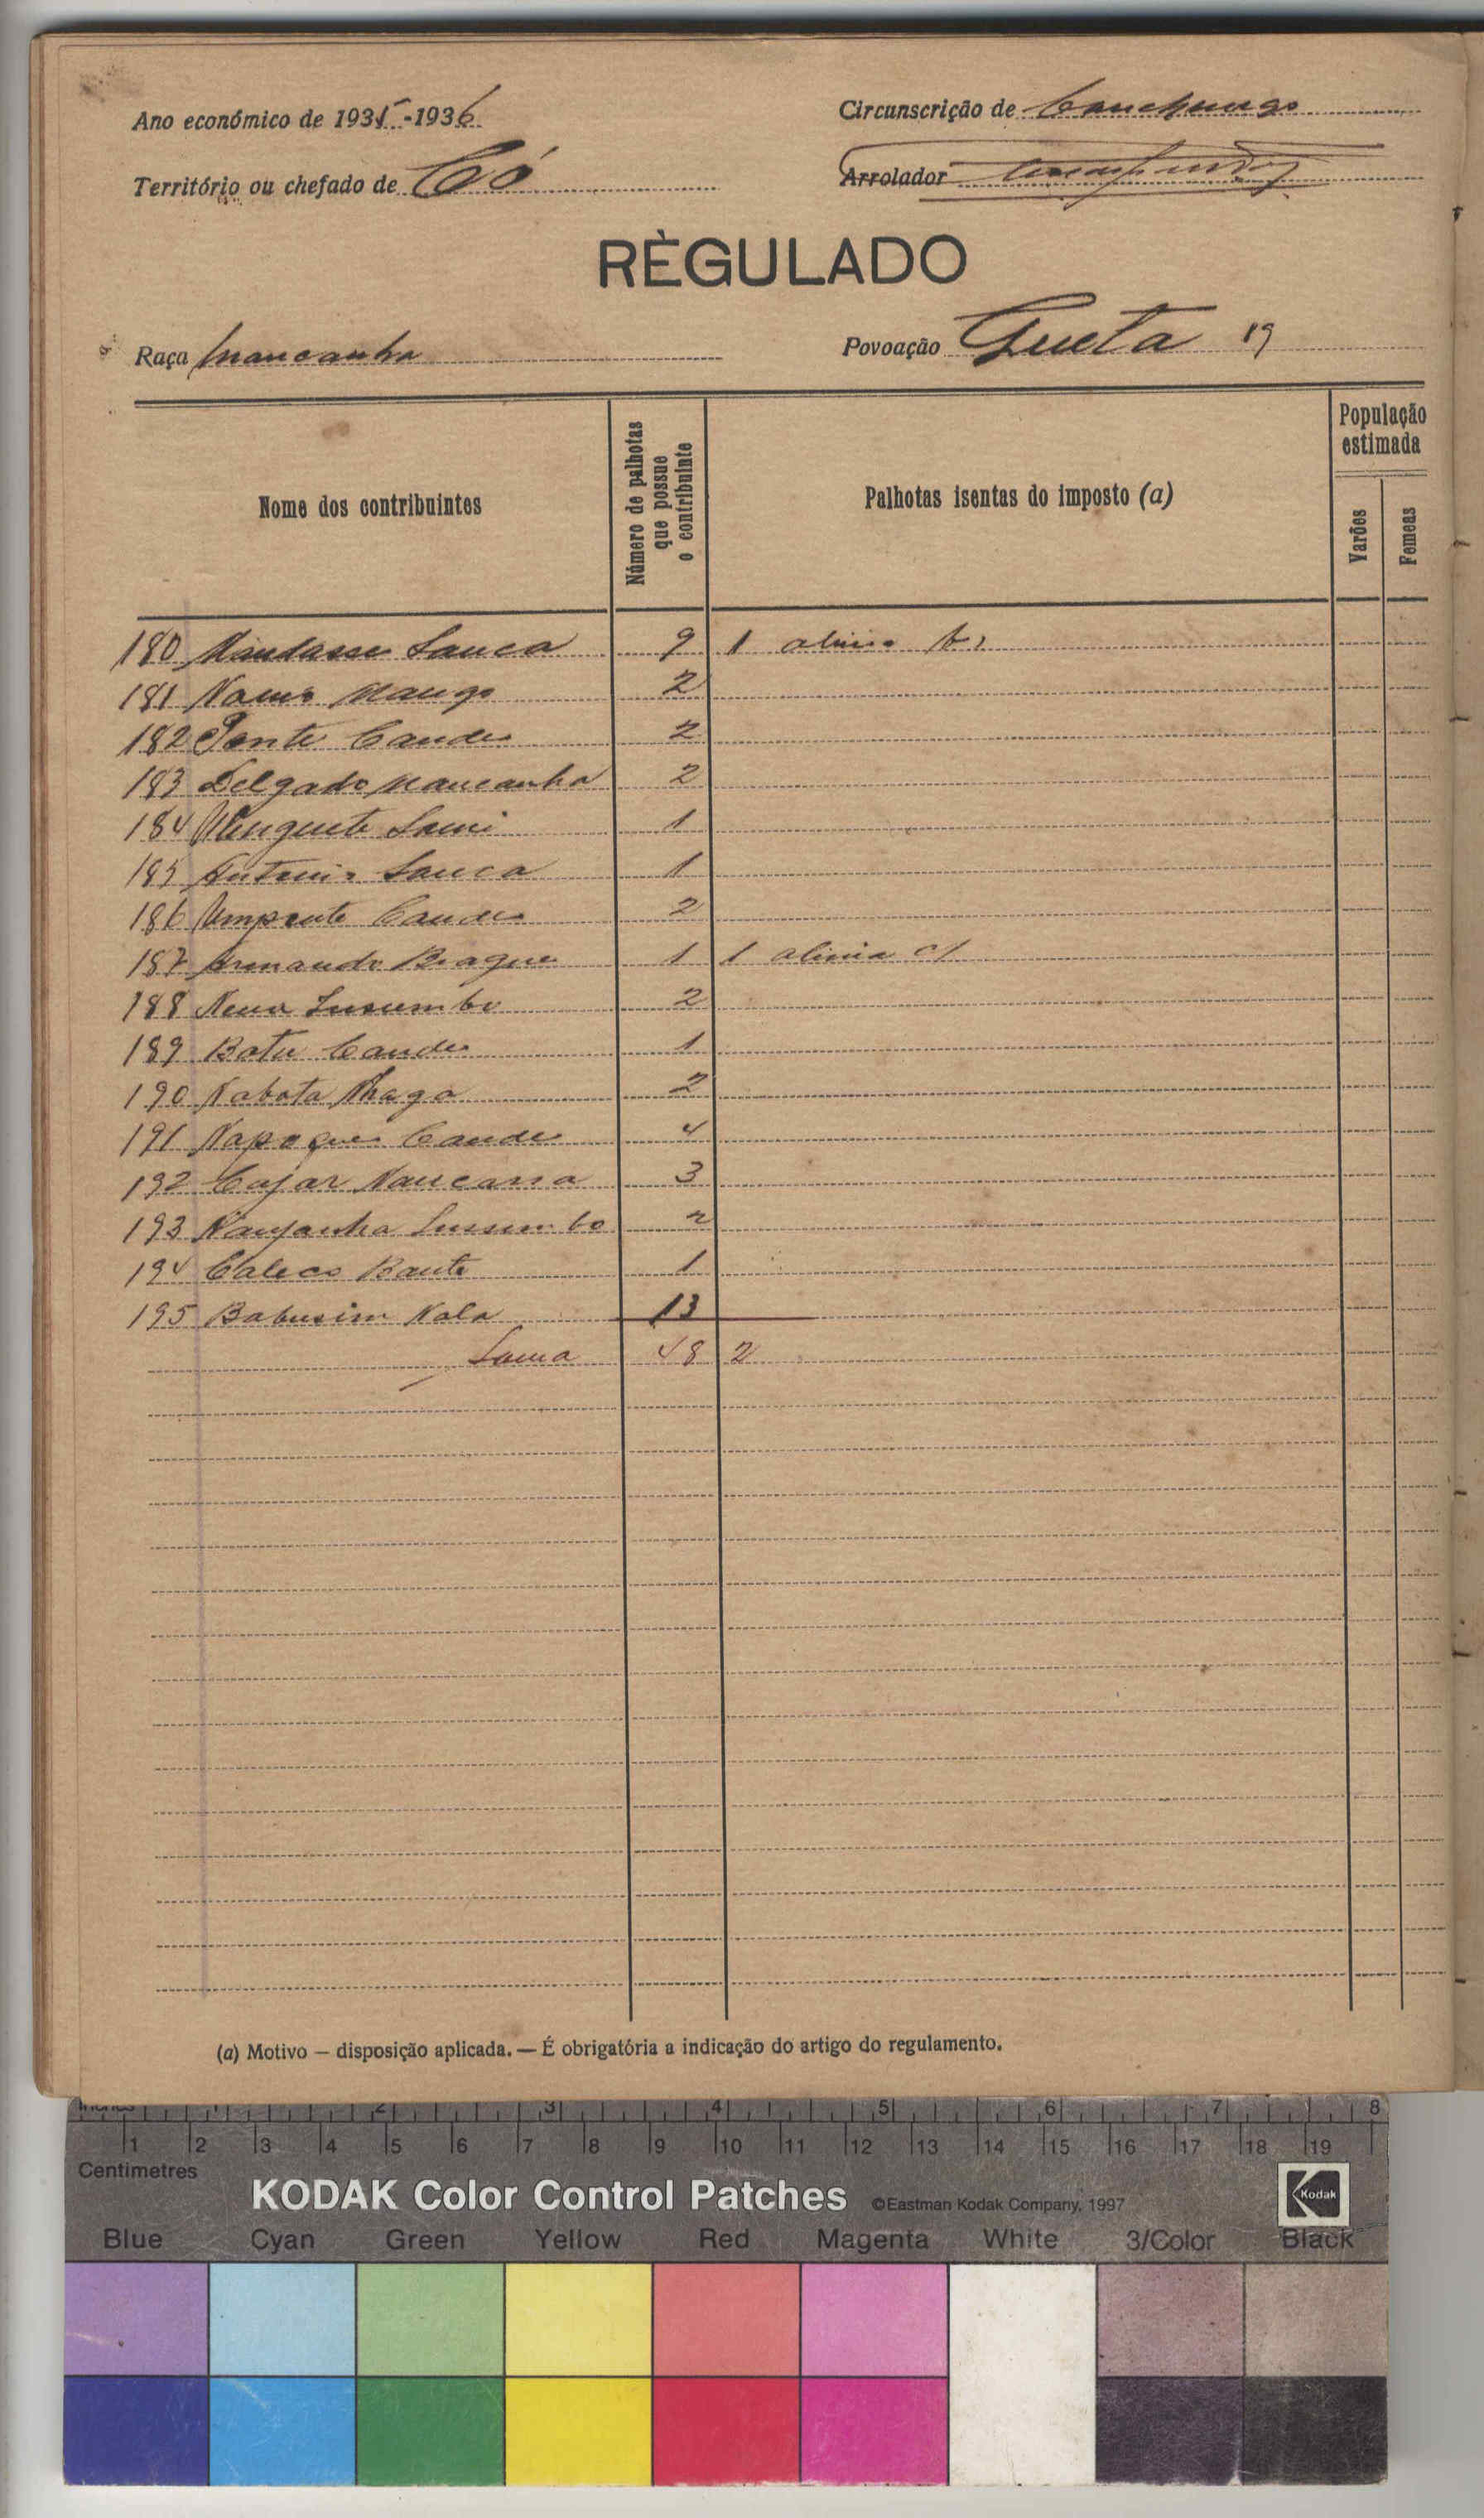 Ano económico de 1935-1936
Circunscrição de Canchungo
Território ou chefado de Có
Arrolador
RÈGULADO
Raça Mancanha
Povoação Gueta 19
Nome dos contribuintes
Número de palhotas que possue o contribuinte
Palhotas isentas do imposto (a)
População estimada
Varões
Femeas
180 Mandasse Sanca 9 1 alinia b)
181 Mango 2
182 Ponte Cande 2
183 Delgado Mancanha 2
184 1
185 Antonio Sanca 1
186 Umpente Cande 2
187 Armando Biague 1 1 alinia c)
188 2
189 Batu Cande 1
190 Nabota 2
191 Napoque Cande 4
192 Cajar Nancassa 3
193 Nanjanha Lussumbo 2
194 Caleco Kante 1
195 Babusim Nala 13
Soma 48 2
(a) Motivo — disposição aplicada. — É obrigatória a indicação do artigo do regulamento.
1 2 3 4 5 6 7 8
1 2 3 4 5 6 7 8 9 10 11 12 13 14 15 16 17 18 19
Centimetres
KODAK Color Control Patches ©Eastman Kodak Company, 1997 Kodak
Blue Cyan Green Yellow Red Magenta White 3/Color Black